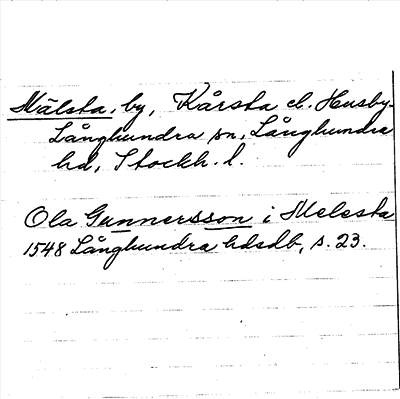 Mälsta, by, Kårsta el. Husby-
Långhundra sn, Långhundra
hd, Stockh. l.
Ola Gunnersson i Melesta
1548 Långhundra hdsdb, s. 23.